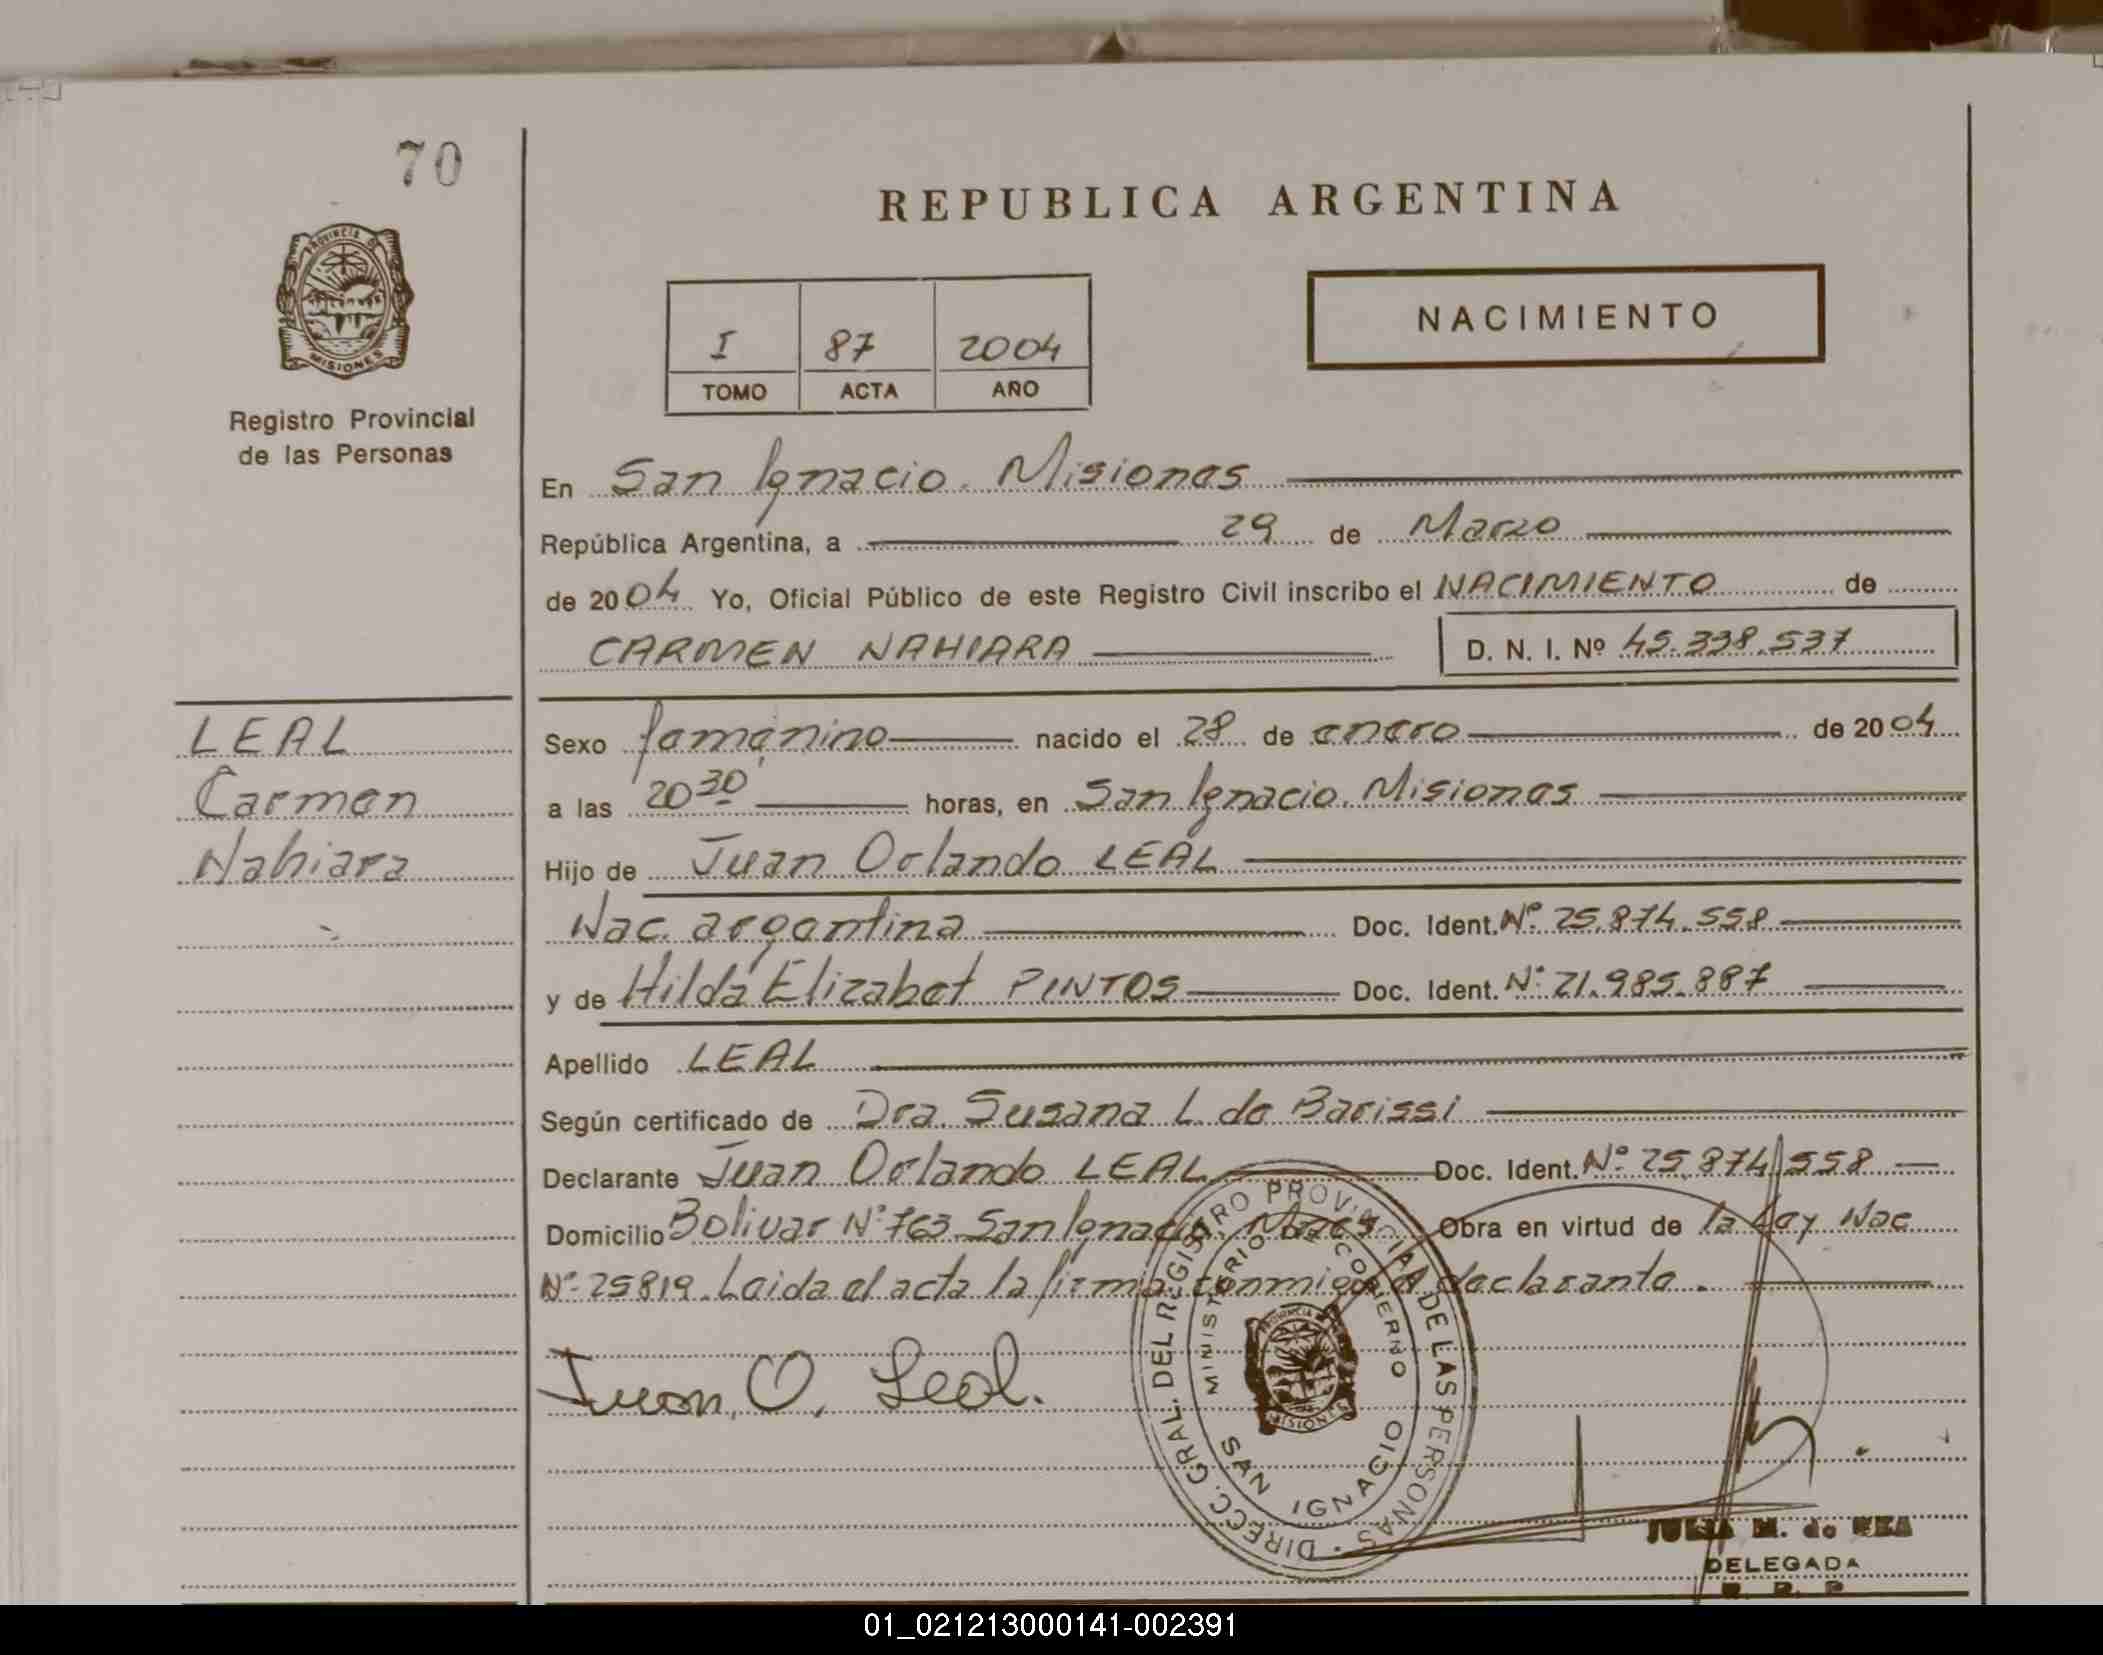 70
REPUBLICA ARGENTINA
PROVINCIA DE
MISIONES
NACIMIENTO
I 87 2004
TOMO ACTA AÑO
Registro Provincial
de las Personas
En San Ignacio. Misiones
República Argentina, a 29 de Marzo
de 2004 Yo, Oficial Público de este Registro Civil inscribo el NACIMIENTO de
CARMEN NAHIARA D. N. I. Nº 45.338.537
LEAL
Carmen
Nahiara
Sexo femenino nacido el 28 de enero de 2004
a las 20 30 horas, en San Ignacio. Misiones
Hijo de Juan Orlando LEAL
Nac. argentina Doc. Ident. Nº 25.874.558
y de Hilda Elizabet PINTOS Doc. Ident. Nº 21.985.887
Apellido LEAL
Según certificado de Dra. Susana L. de Barissi
Declarante Juan Orlando LEAL Doc. Ident. Nº 25.874.558
Domicilio Bolivar Nº 763 San Ignacio. Mnes Obra en virtud de la Ley Nac
Nº 25819. Leida el acta la firma conmigo el declarante.
Juan. O. Leal.
DIREC. GRAL. DEL REGISTRO PROVINCIAL DE LAS PERSONAS
MINISTERIO DE GOBIERNO
SAN IGNACIO
PROVINCIA DE
MISIONES
JULIA M. de
DELEGADA
R. P. P.
01_021213000141-002391